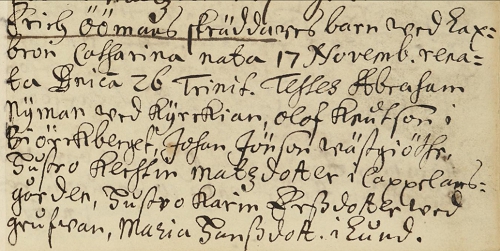 Erich Öömans skräddares barn wed Kap=
bron Catharina nata 17 Novemb. rena=
ta Dnica 26 Trinit. Testes Abraham
Nyman wed Kyrckian, Olof Knutson i
Biörckberget, Johan Jönson wästgiöthe,
Hustro Kerstin Matzdotter i Cappelans=
gården, Hustro Karin Erßdotter wed
grufwan, Maria Hanßdott. i Lund.